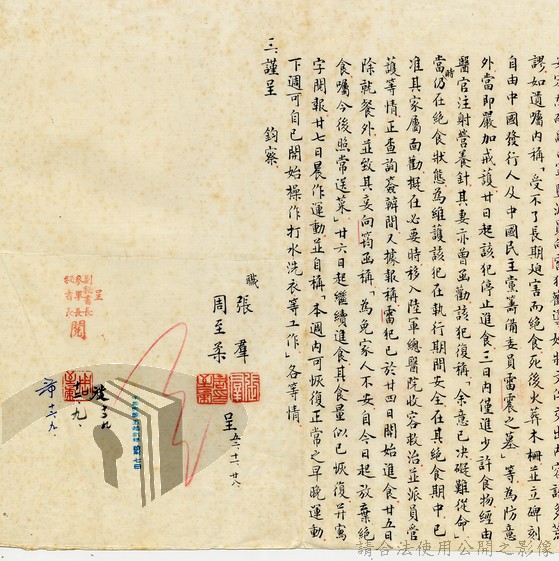 謬如遺囑內稱「受不了長期迫害而絕食死後火葬並立木碑刻
自由中國發行人及中國民主黨籌備委員雷震之墓」等為防意
外當即嚴加戒護廿日起該犯停止進食三日內僅進少許食物經由
醫官注射營養針其妻亦曾函勸該犯復稱「余意已決礙難從命」
當時仍在絕食狀態為維護該犯在執行期間安全在其絕食期中已
准其家屬面勸擬在必要時移入陸軍總醫院收容救治並派員管
護等情正查詢簽辦間又據報稱雷犯已於廿四日開始進食廿五日
除就餐外並致其妻向筠函稱「為免家人不安自今日起放棄絕
食囑今後照常送菜」廿六日起繼續進食其食量似已恢復并寫
字閱報廿七日晨作運動並自稱「本週內可恢復正常之早晚運動
下週可自己開始操作打水洗衣等工作」各等情
三、謹呈 鈞察
職 張羣
周至柔 呈 五二、十一、廿八
呈
副秘書長
參軍長
秘書長
閱
十一、九
請合法使用公開之影像